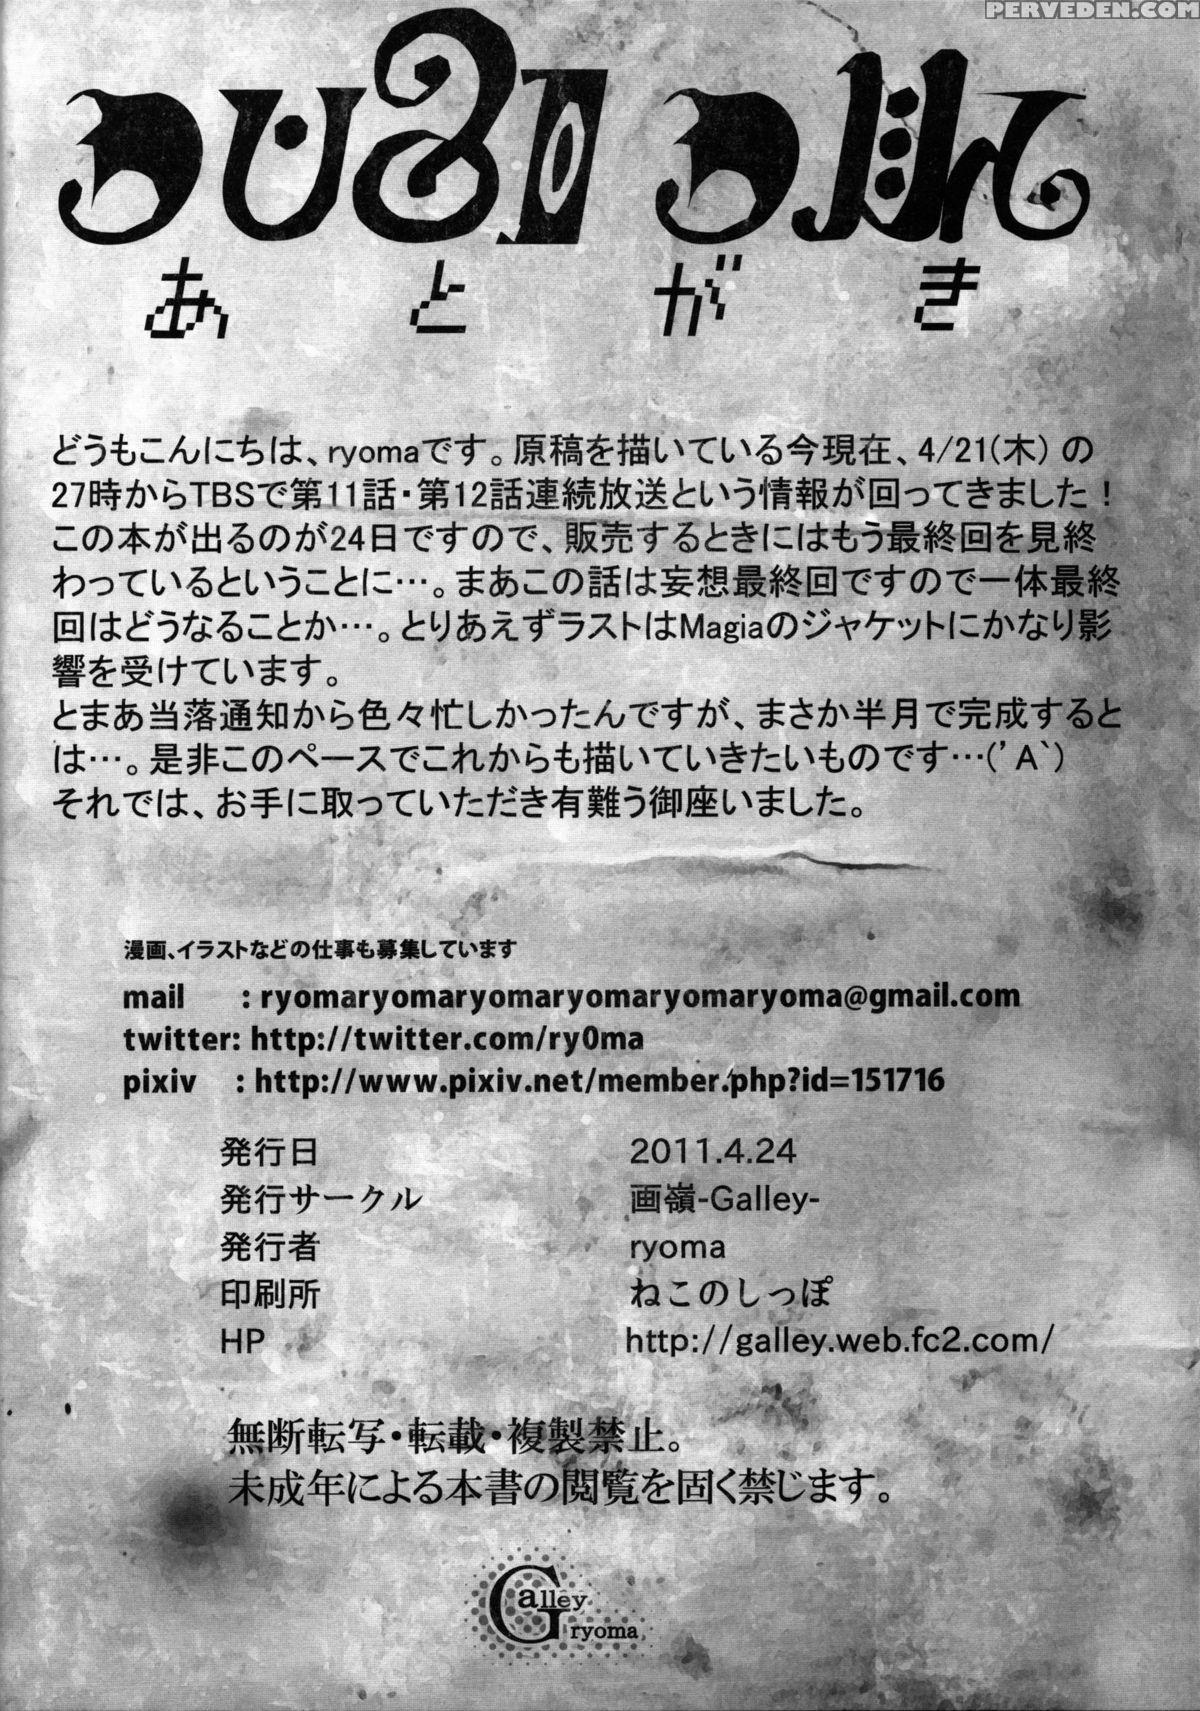 PERVEDEN.COM
あとがき
どうもこんにちは、ryomaです。原稿を描いている今現在、4/21(木) の
27時からTBSで第11話・第12話連続放送という情報が回ってきました！
この本が出るのが24日ですので、販売するときにはもう最終回を見終
わっているということに…。まあこの話は妄想最終回ですので一体最終
回はどうなることか…。とりあえずラストはMagiaのジャケットにかなり影
響を受けています。
とまあ当落通知から色々忙しかったんですが、まさか半月で完成すると
は…。是非このペースでこれからも描いていきたいものです…('A`)
それでは、お手に取っていただき有難う御座いました。
漫画、イラストなどの仕事も募集しています
mail : ryomaryomaryomaryomaryomaryoma@gmail.com
twitter: http://twitter.com/ry0ma
pixiv : http://www.pixiv.net/member.php?id=151716
発行日 2011.4.24
発行サークル 画嶺-Galley-
発行者 ryoma
印刷所 ねこのしっぽ
HP http://galley.web.fc2.com/
無断転写・転載・複製禁止。
未成年による本書の閲覧を固く禁じます。
Galley
ryoma